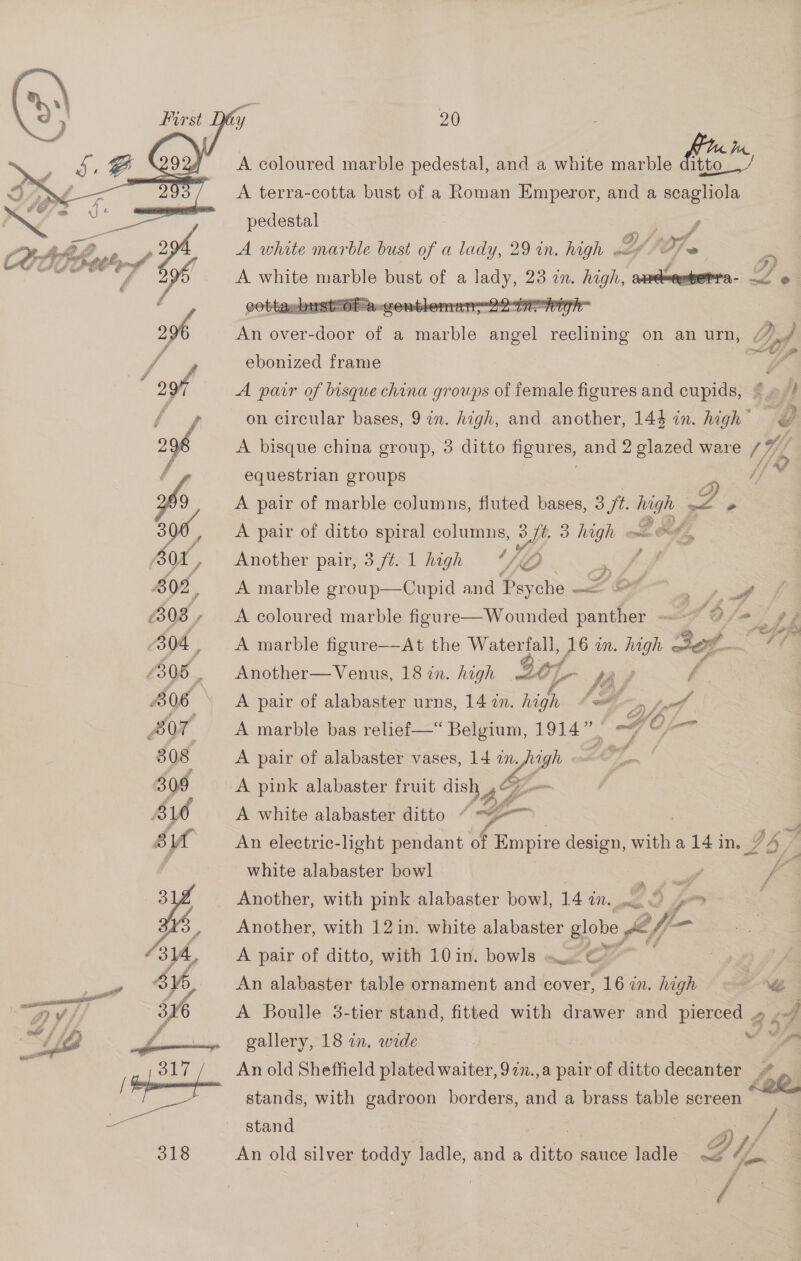 First Day 20
292 A coloured marble pedestal, and a white marble ditto
293 A terra-cotta bust of a Roman Emperor, and a scagliola
pedestal
294 A white marble bust of a lady, 29 in. high
295 A white marble bust of a lady, 23 in. high, and a terra-
cotta bust of a gentleman, 22 in. high
296 An over-door of a marble angel reclining on an urn,
ebonized frame
297 A pair of bisque china groups of female figures and cupids,
on circular bases, 9 in. high, and another, 14½ in. high
298 A bisque china group, 3 ditto figures, and 2 glazed ware
equestrian groups
299 A pair of marble columns, fluted bases, 3 ft. high
300 A pair of ditto spiral columns, 3 ft. 3 high
301 Another pair, 3 ft. 1 high
302 A marble group—Cupid and Psyche
303 A coloured marble figure—Wounded panther
304 A marble figure—At the Waterfall, 16 in. high
305 Another—Venus, 18 in. high
306 A pair of alabaster urns, 14 in. high
307 A marble bas relief—“ Belgium, 1914 ”
308 A pair of alabaster vases, 14 in. high
309 A pink alabaster fruit dish
310 A white alabaster ditto
311 An electric-light pendant of Empire design, with a 14 in.
white alabaster bowl
312 Another, with pink alabaster bowl, 14 in.
313 Another, with 12 in. white alabaster globe
314 A pair of ditto, with 10 in. bowls
315 An alabaster table ornament and cover, 16 in. high
316 A Boulle 3-tier stand, fitted with drawer and pierced
gallery, 18 in. wide
317 An old Sheffield plated waiter, 9 in., a pair of ditto decanter
stands, with gadroon borders, and a brass table screen
stand
318 An old silver toddy ladle, and a ditto sauce ladle